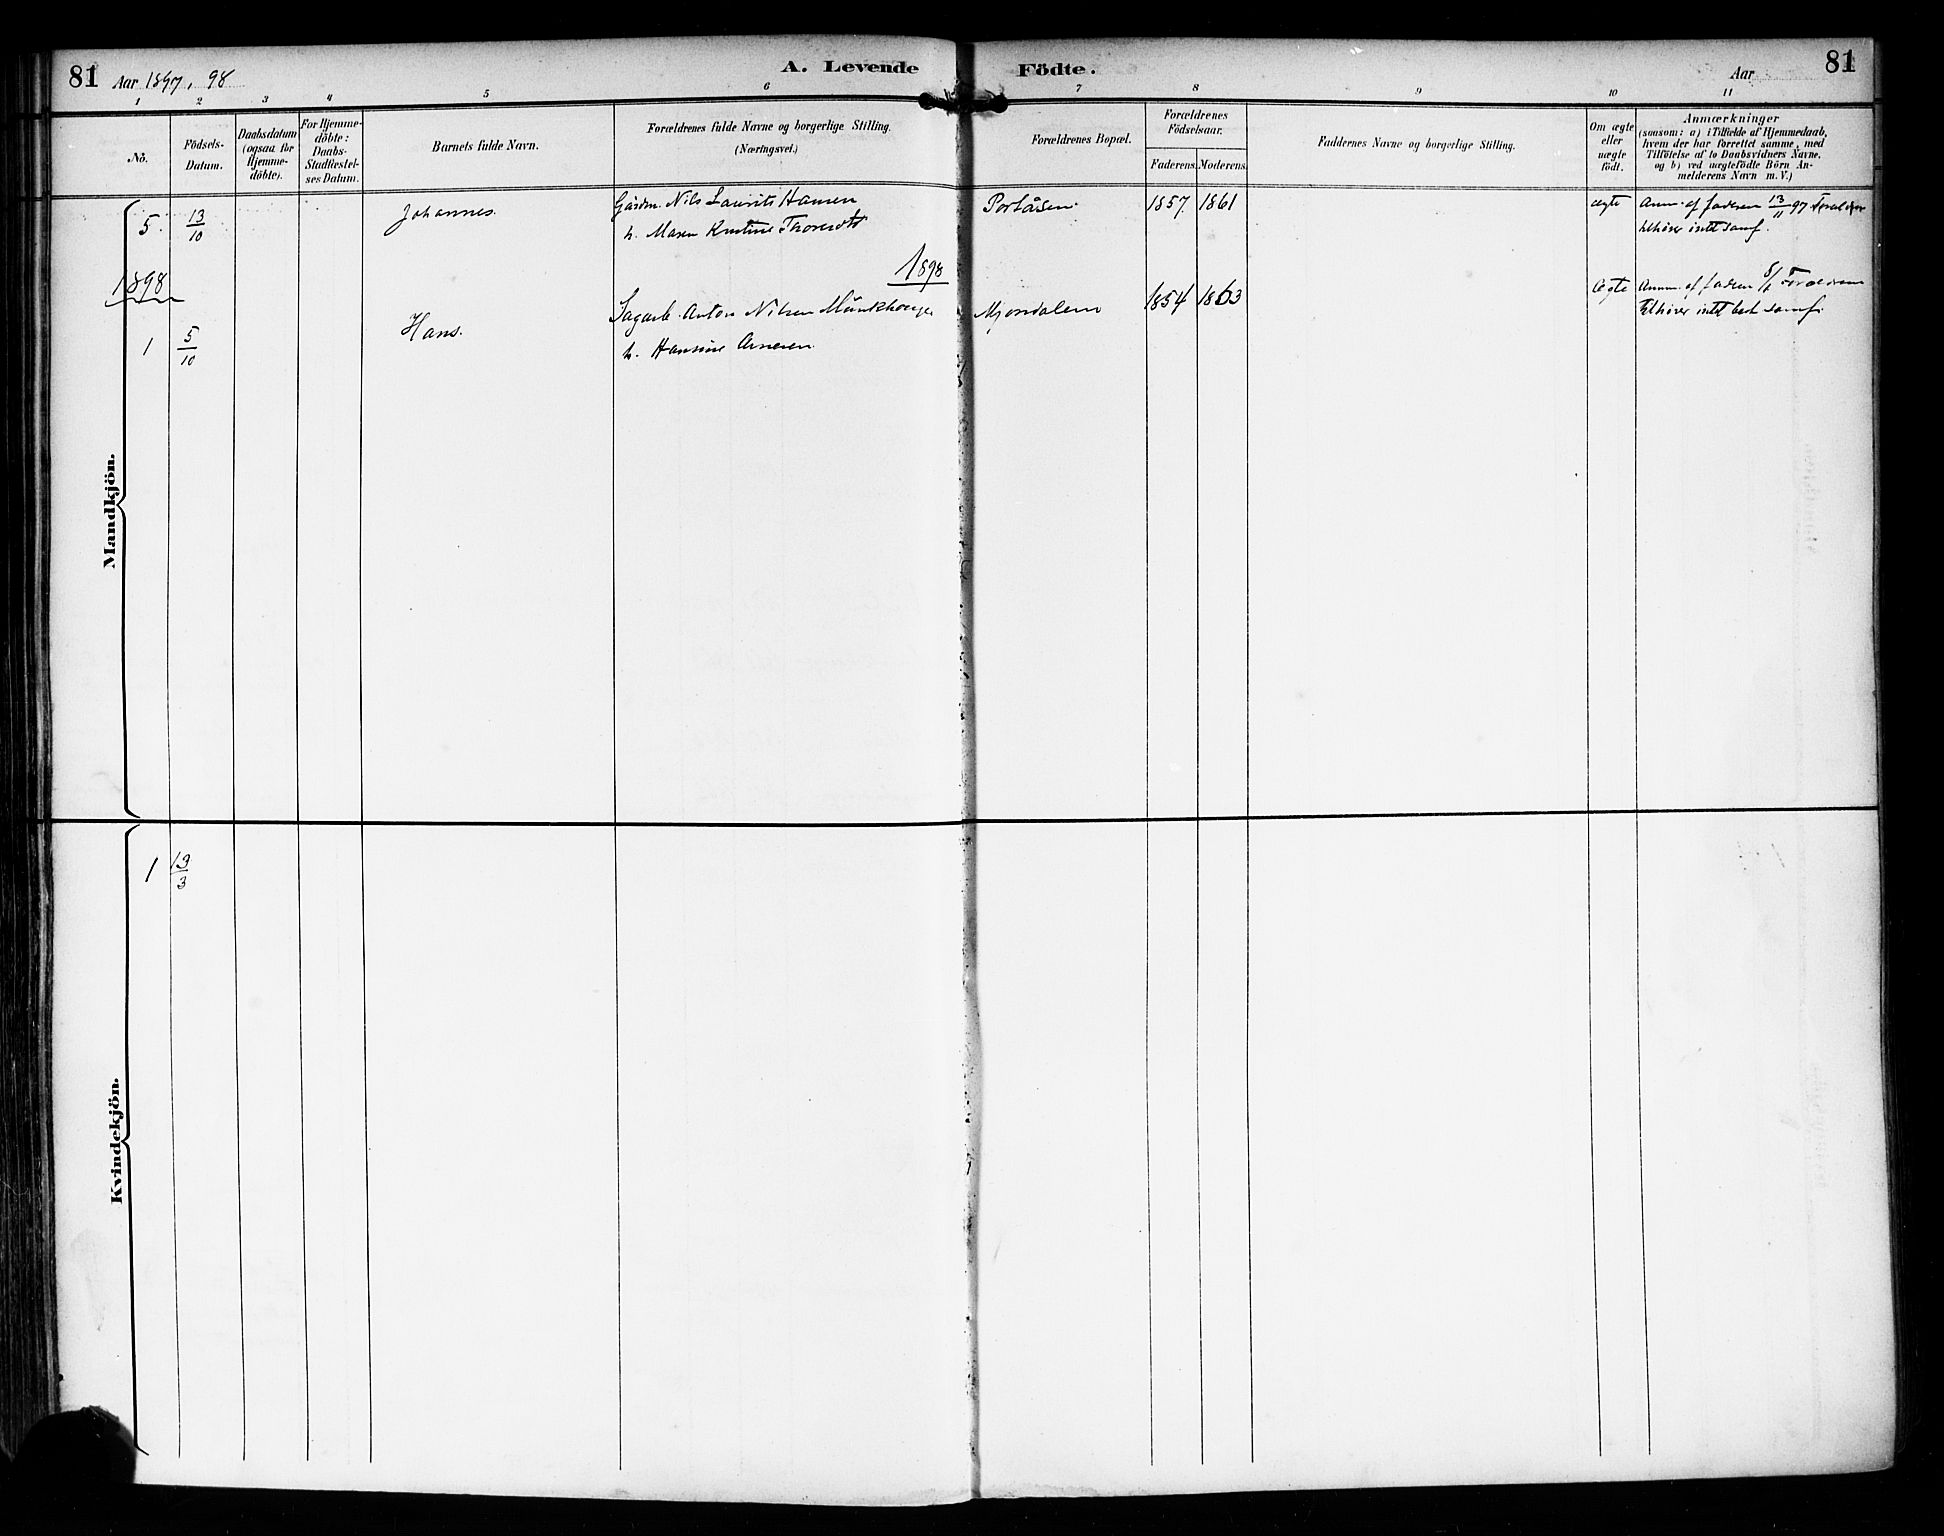 81 Aar 1897, 98 A. Levende Födte. Aar 81
1 2 3 4 5 6 7 8 9 10 11
No.
Födsels-
Datum.
Daabsdatum
(ogsaa for
Hjemme-
döbte).
For Hjemme-
döbte:
Daabs-
Stadfæstel-
ses Datum.
Barnets fulde Navn.
Forældrenes fulde Navne og borgerlige Stilling.
(Næringsvei.)
Forældrenes Bopæl.
Forældrenes
Födselsaar.
Faderens. Moderens.
Faddernes Navne og borgerlige Stilling.
Om ægte
eller
uægte
födt.
Anmærkninger
(saasom: a) i Tilfælde af Hjemmedaab,
hvem der har forrettet samme, med
Tilföielse af to Daabsvidners Navne,
og b) ved uægtefödte Börn An-
melderens Navn m. V.)
Mandkjön.
5. 13/10 Johannes. Gårdm. Nils Laurits Hansen Portåsen. 1857. 1861 ægte Anm. af faderen 13/11 97
h. Maren Kristine tilhører intet samf.
1898
1898
1 5/10 Hans. Sagarb. Anton Nilsen Mjøndalen 1854 1863 ægte Anm. af faderen Forældrene
h. Hansine Arnesen tilhører intet best samf.
Kvindekjön.
1 13/3